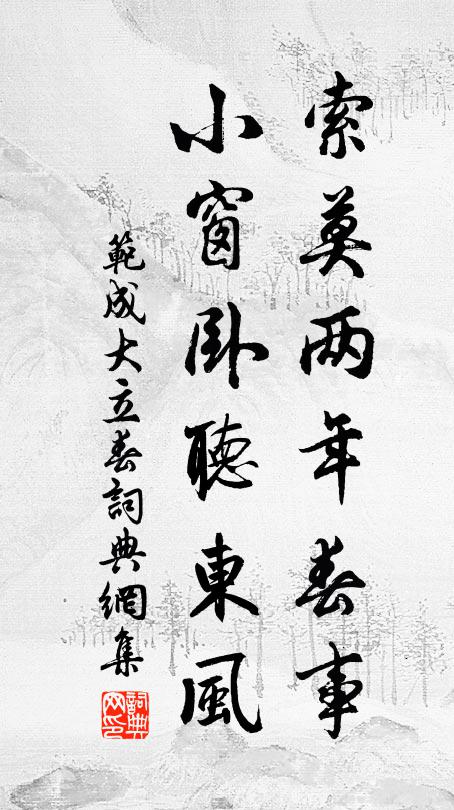 索莫两年春事
小窗卧聽東風
範成大立春詞典網集
詞典網印